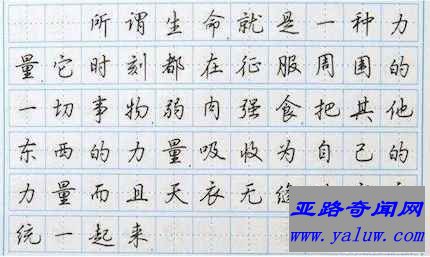 所谓生命就是一种力
量它时刻都在征服周围的
一切事物弱肉强食把其他
东西的力量吸收为自己的
力量而且天衣无缝
统一起来
亚路奇闻网
www.yaluw.com